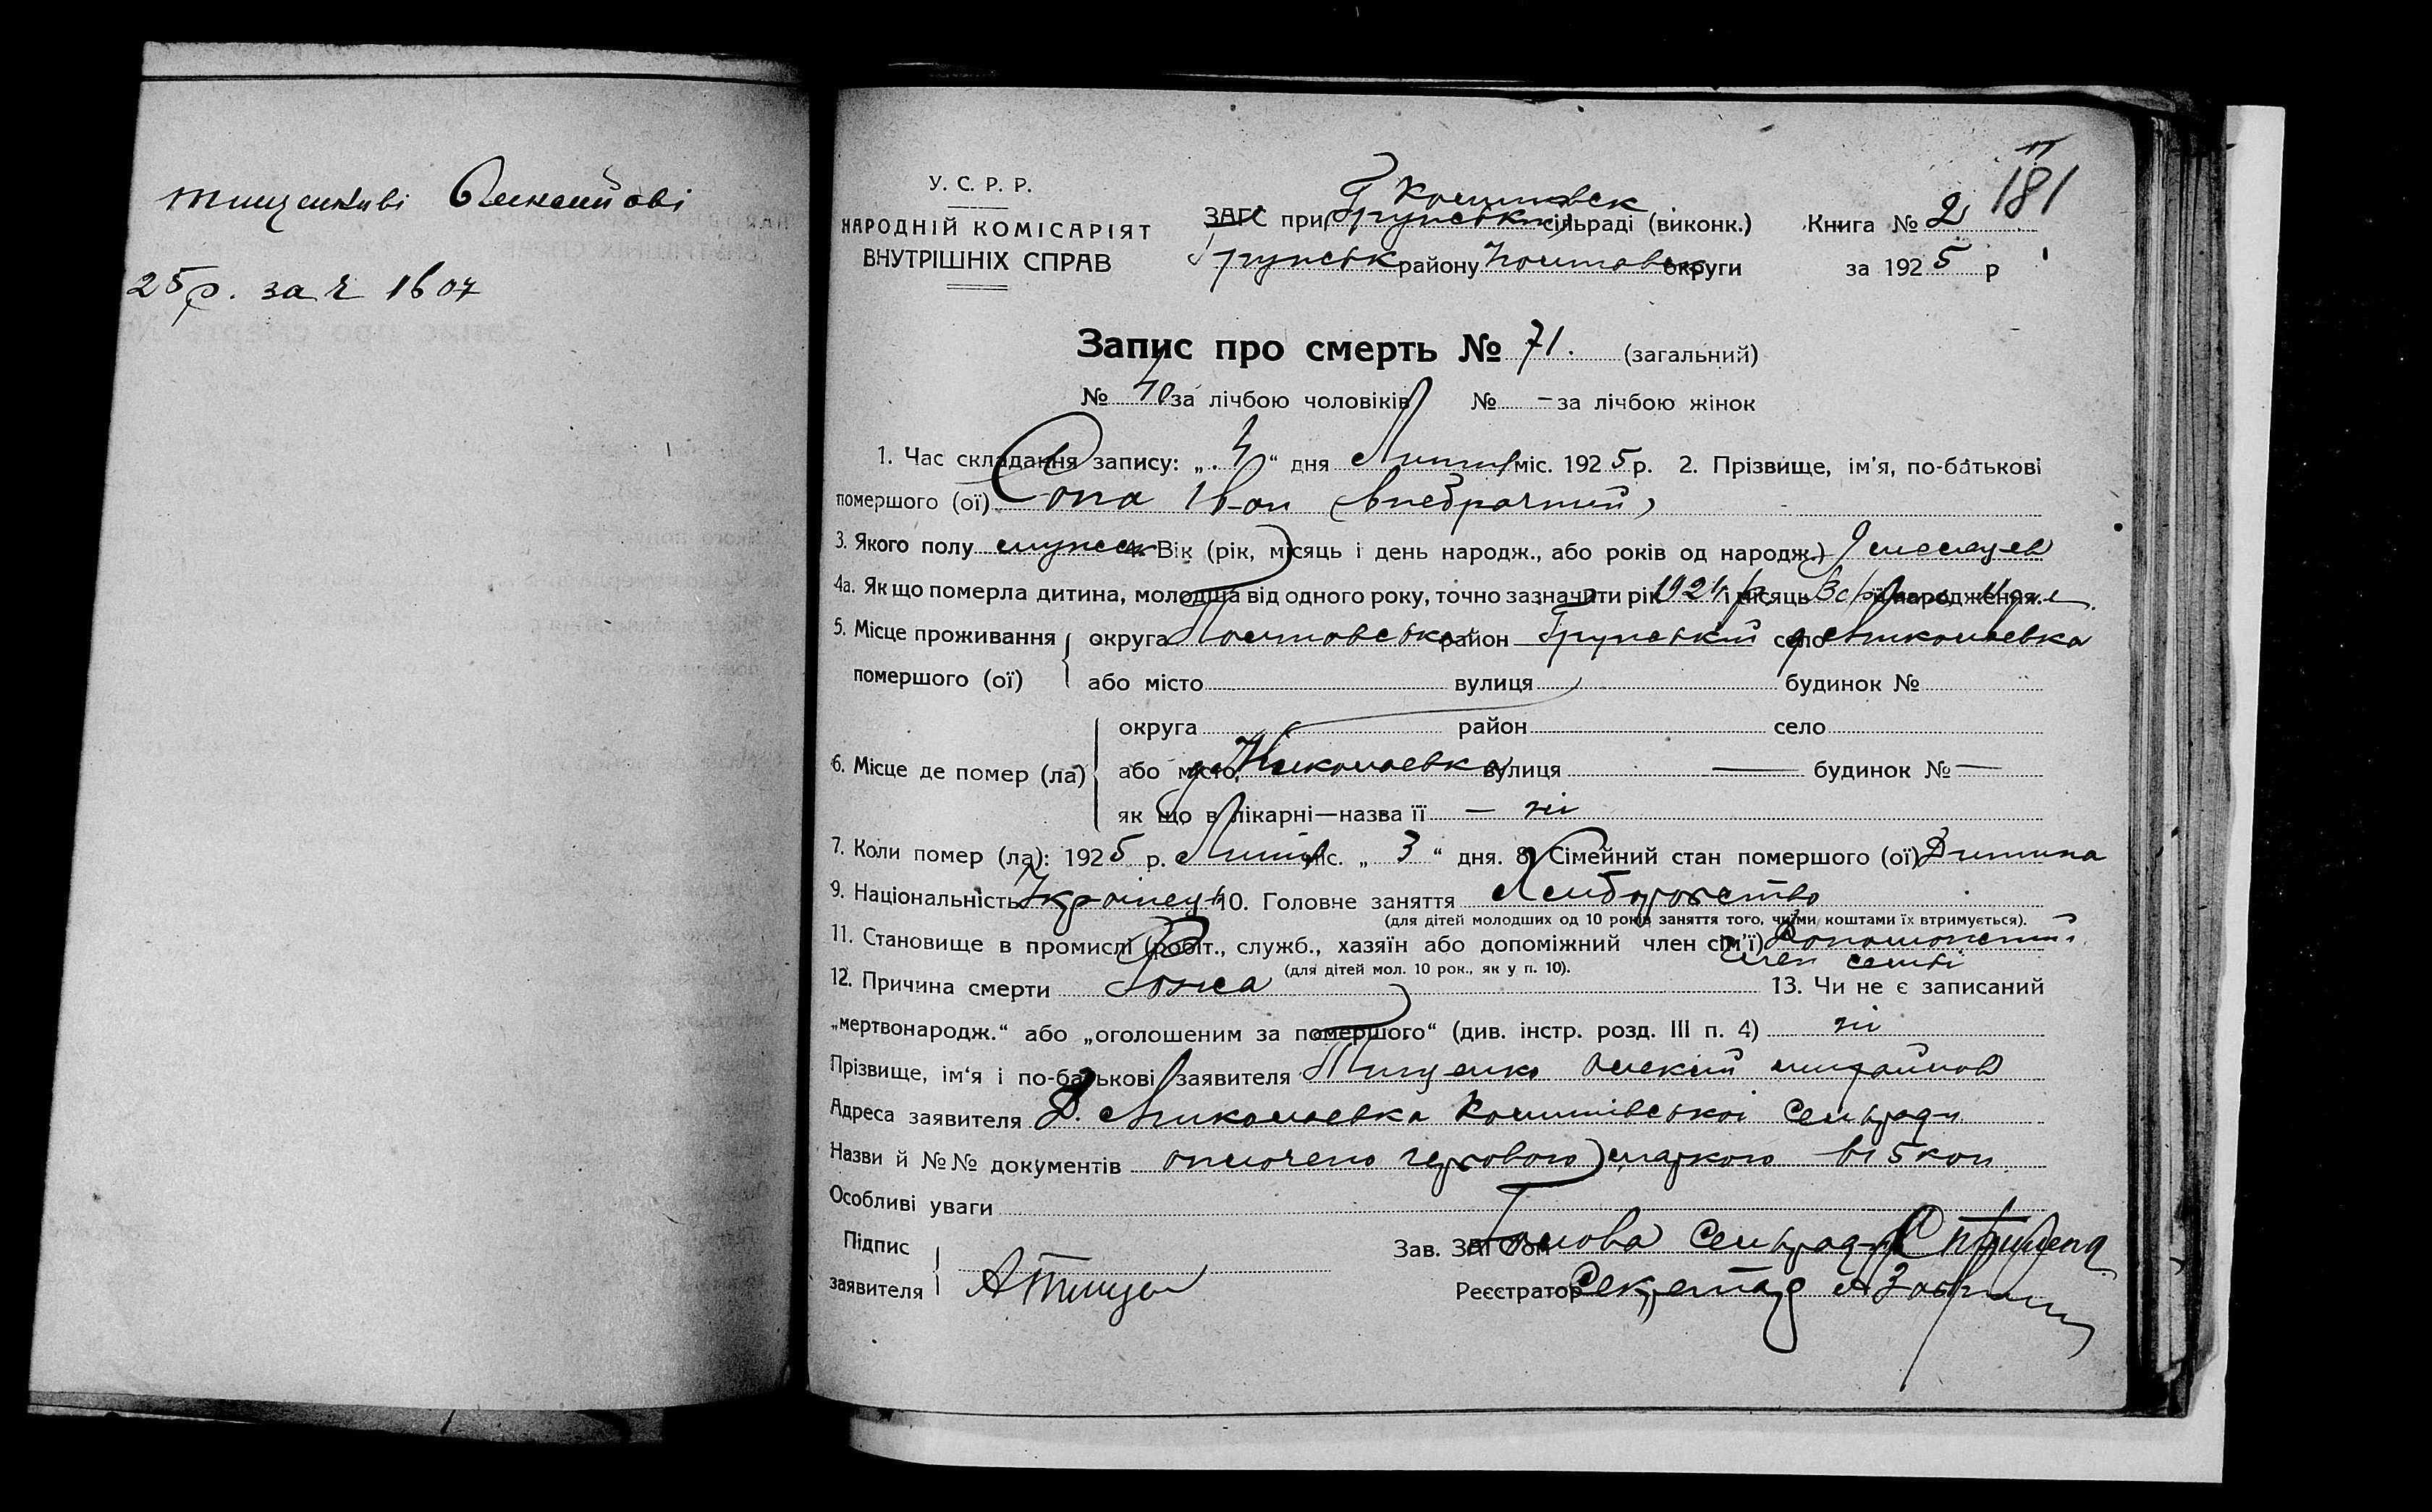 25р. за 1607
181
У. С. Р. Р.
НАРОДНІЙ КОМІСАРІЯТ
ВНУТРІШНІХ СПРАВ
ЗАГС при Грунськ сільраді (виконк.)
Грунськ району округи
Книга № 2
за 1925 р
Запис про смерть № 71. (загальний)
№ за лічбою чоловіків № – за лічбою жінок
1. Час складання запису: „ “ дня міс. 1925 р. 2. Прізвище, ім’я, по-батькові
помершого (ої) Сопа Іван (внебрачний)
3. Якого полу 4. Вік (рік, місяць і день народж., або років од народж.) 9 месяцев
4а. Як що померла дитина, молодша від одного року, точно зазначити рік 1924 і місяць її народження.
5. Місце проживання помершого (ої) округа район Грунський село Николаевка
або місто вулиця будинок №
6. Місце де помер (ла) округа район село
або місто Николаевка вулиця — будинок № —
як що в лікарні—назва її — ні
7. Коли помер (ла): 1925 р. міс. „ 3 “ дня. 8. Сімейний стан помершого (ої) Дитина
9. Національність Украінець 10. Головне заняття Хлеборобство
(для дітей молодших од 10 років заняття того, чиїми коштами їх втримується).
11. Становище в промислі (робіт., служб., хазяїн або допоміжний член сім’ї)
член семьі
(для дітей мол. 10 рок., як у п. 10).
12. Причина смерти Рожа 13. Чи не є записаний
„мертвонародж.“ або „оголошеним за помершого“ (див. інстр. розд. III п. 4) ні
Прізвище, ім‘я і по-батькові заявителя Тищенко Олексій
Адреса заявителя д. Николаевка сельради
Назви й №№ документів оплочено маркою в 5 коп.
Особливі уваги
Підпис
заявителя А Тищен
Зав. ЗАГСом Голова Сельради
Реєстратор Секретар